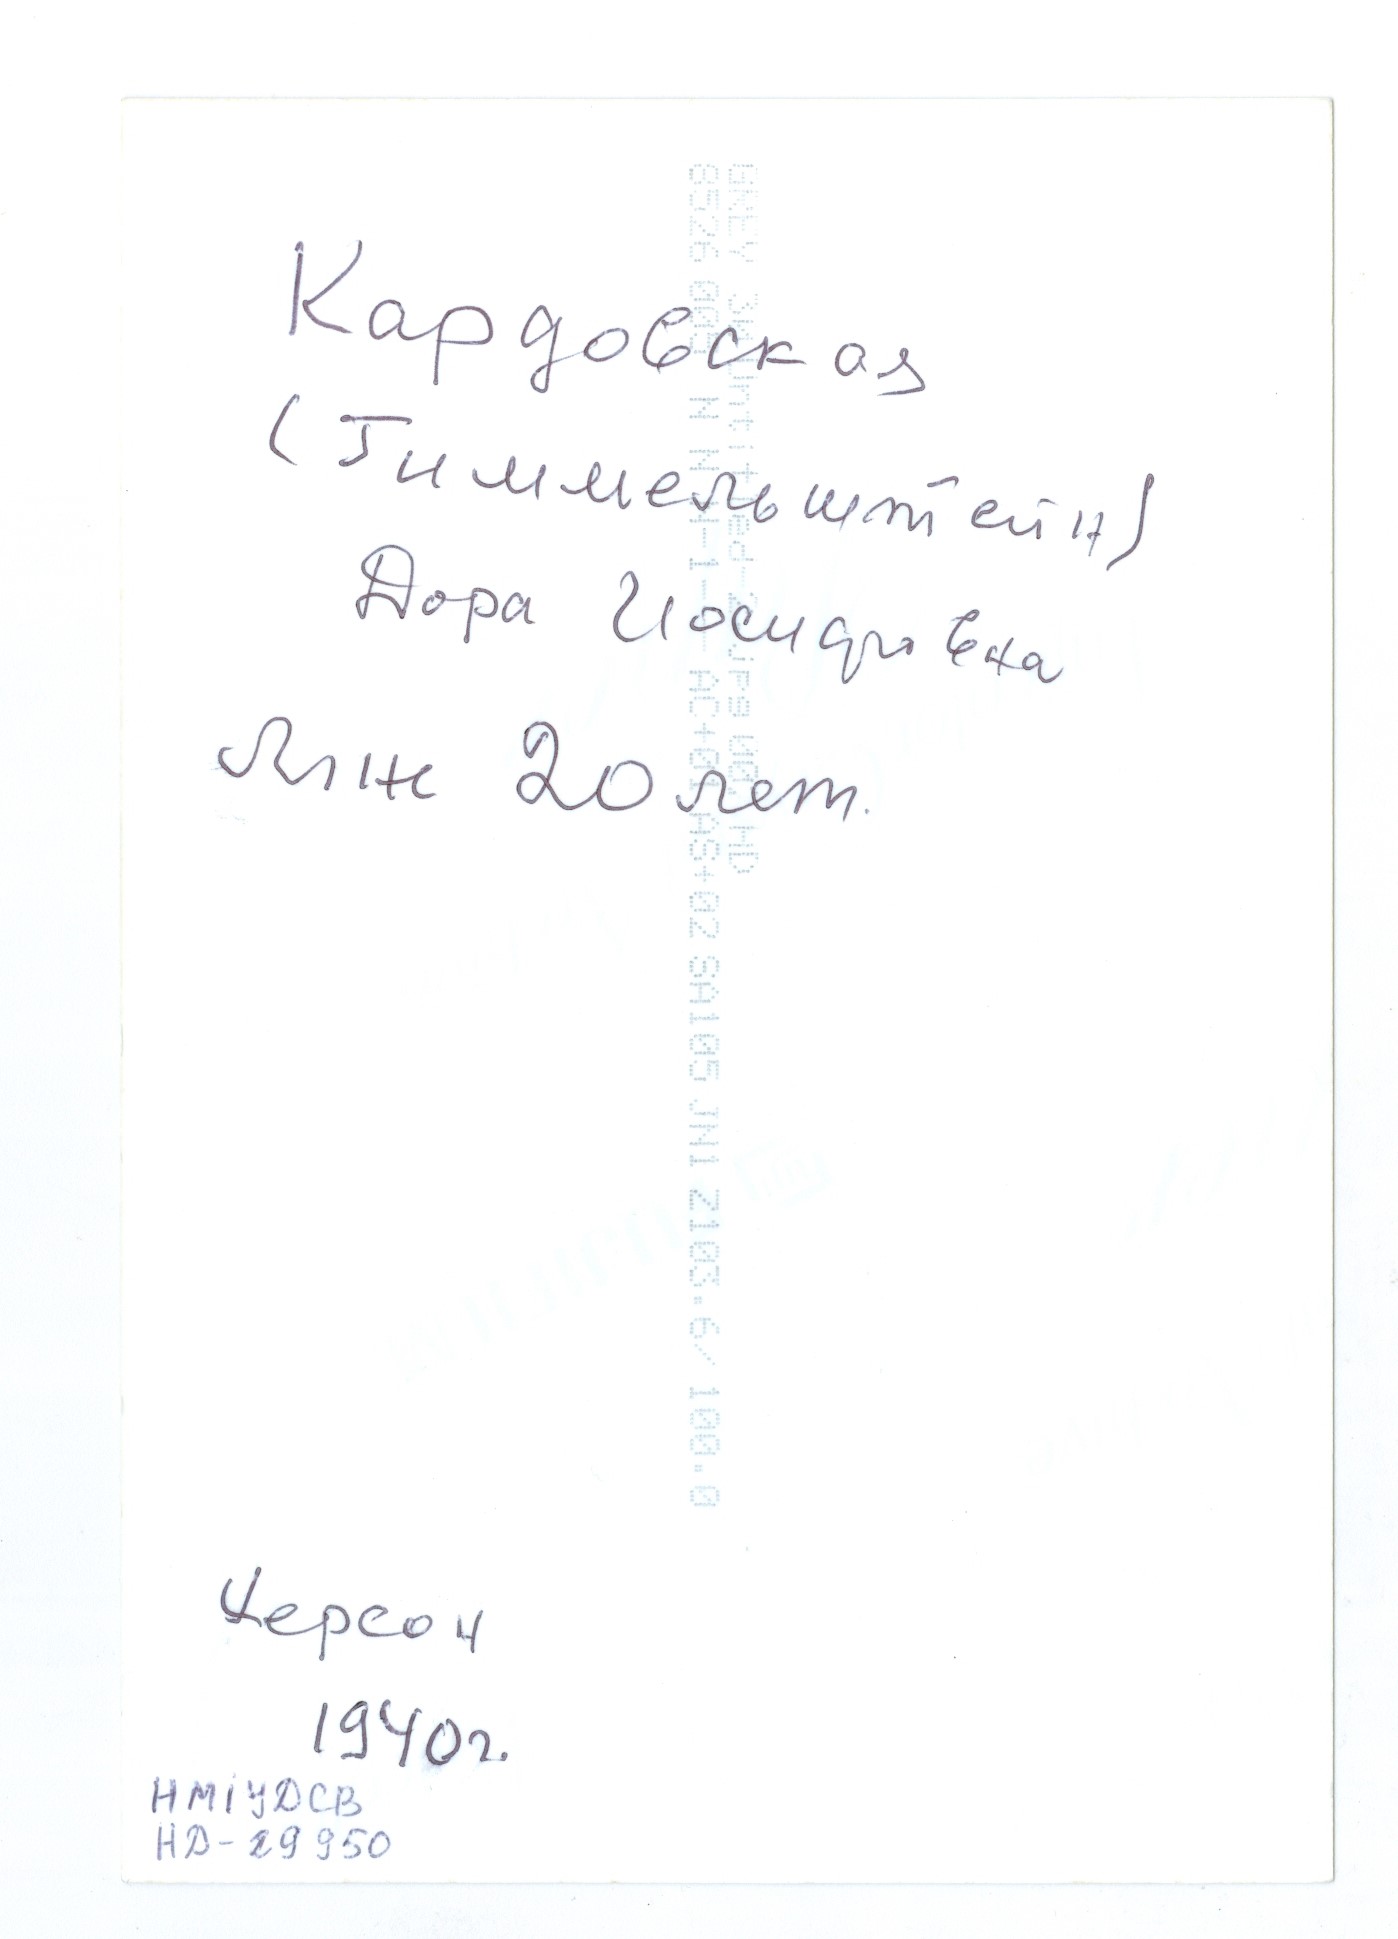 Кардовская
(Гиммельштейн)
Дора Иосифовна
Мне 20 лет.
Херсон
1940г.
НМІУДСВ
НД-29950